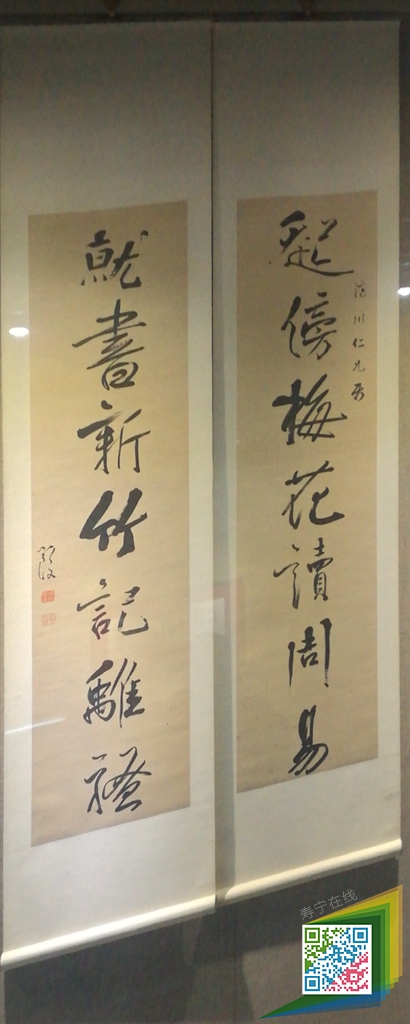 起傍梅花讀周易
川仁兄
就書新竹記離騷
寿宁在线